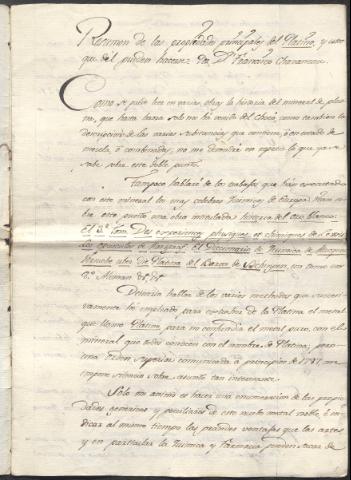 Resumen de las propiedades principales del Platino, y usos
que del pueden hacerse. Por Dn Francisco Chavaneau.
Como se puede leer en varias obras la historia del mineral de plati-
na, que hasta ahora solo nos venido del Chocó, como tambien la
descripcion de las varias substancias que contiene, ó en estado de
mezcla, ó combinadas, no me detendré en repetir lo que ya se
sabe sobre este doble punto.
Tampoco hablaré de los trabajos que han executado
con este mineral los mas celebres Quimicos de Europa. Vean so-
bre este punto una obra intitulada historia del oro blanco.
El 2º tom. Des experiences physiques et chimiques de Lewis
las opusculos de Margraf. El Diccionario de Quimica de Macquer
sobre la Platina del Baron de Sickingen, un tomo en
8º Aleman &c. &c.
Deberia hablar de los varios methodos que sucesi-
vamente he empleado para extraher de la Platina el metal
que llamo Platino, para no confundir el metal puro, con el
mineral que todos conocen con el nombre de Platina; pero
una orden Superior comunicada á principios de 1787 me
impone silencio sobre asunto tan interesante.
Solo me animo á hacer una enumeracion de las propie-
dades genéricas y peculiares de este nuevo metal noble, é in-
dicar al mismo tiempo las grandes ventajas que las artes
y en particular la Quimica y Farmacia pueden sacar de